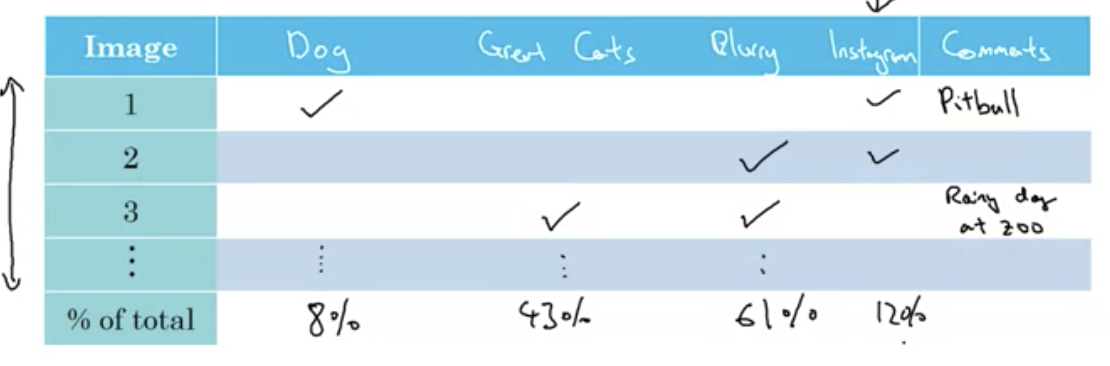 Image Dog Great Cats Blurry Instagram Comments
1 ✓ ✓ Pitball
2 ✓ ✓
3 ✓ ✓ Rainy day
at zoo
⋮ ⋮ ⋮ ⋮
% of total 8% 43% 61% 12%